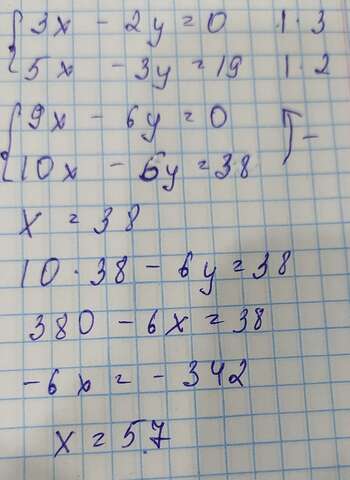 {3x - 2y = 0 | · 3
{5x - 3y = 19 | · 2
{9x - 6y = 0
{10x - 6y = 38 ] -
x = 38
10 · 38 - 6y = 38
380 - 6x = 38
-6x = - 342
x = 57